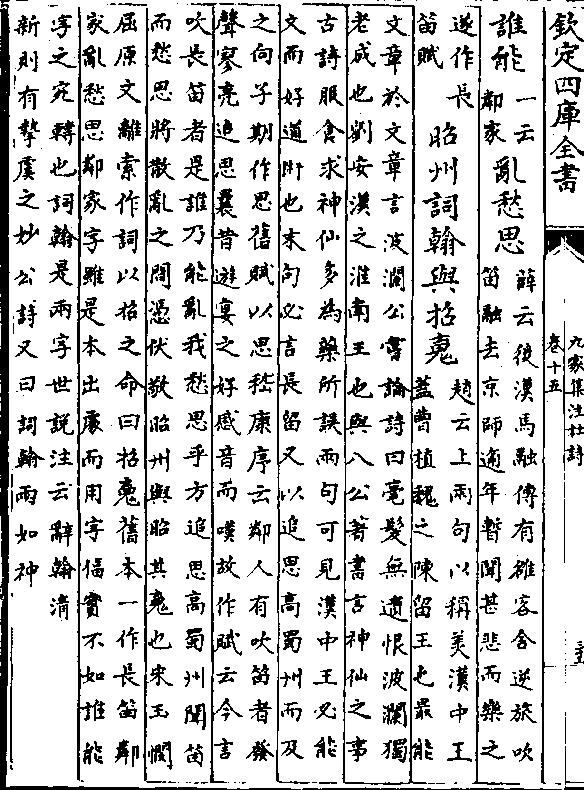 欽定四庫全書
九家集注杜詩
卷十五
誰能一云鄰家亂愁思薛云後漢馬融傳有雒客舍逆旅吹
笛融去京師逾年暫聞甚悲而樂之
遂作長
笛賦昭州詞翰與招魂趙云上兩句以稱美漢中王
蓋曹植魏之陳留王也最能
文章於文章言波瀾公嘗論詩曰毫髮無遺恨波瀾獨
老成也劉安漢之淮南王也與八公著書言神仙之事
古詩服食求神仙多為藥所誤兩句可見漢中王必能
文而好道術也末句必言長留又以追思高蜀州而及
之向子期作思舊賦以思嵇康序云鄰人有吹笛者發
聲寥亮追思曩昔遊宴之好感音而嘆故作賦云今言
吹長笛者是誰乃能亂我愁思乎方追思高蜀州聞笛
而愁思將散亂之間憑仗敬昭州與昭其魂也宋玉憫
屈原文離索作詞以招之命曰招魂舊本一作長笛鄰
家亂愁思鄰家字雖是本出處而用字偪實不如誰能
字之宛轉也詞翰是兩字世說注云辭翰清
新則有摯虞之妙公詩又曰詞翰兩如神